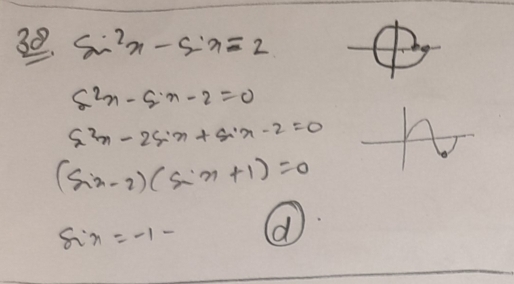 38. Sin²x - Sinx = 2
S²x - Sinx - 2 = 0
S²x - 2Sinx + Sinx - 2 = 0
(Sinx - 2) (Sinx + 1) = 0
Sinx = -1 -
d